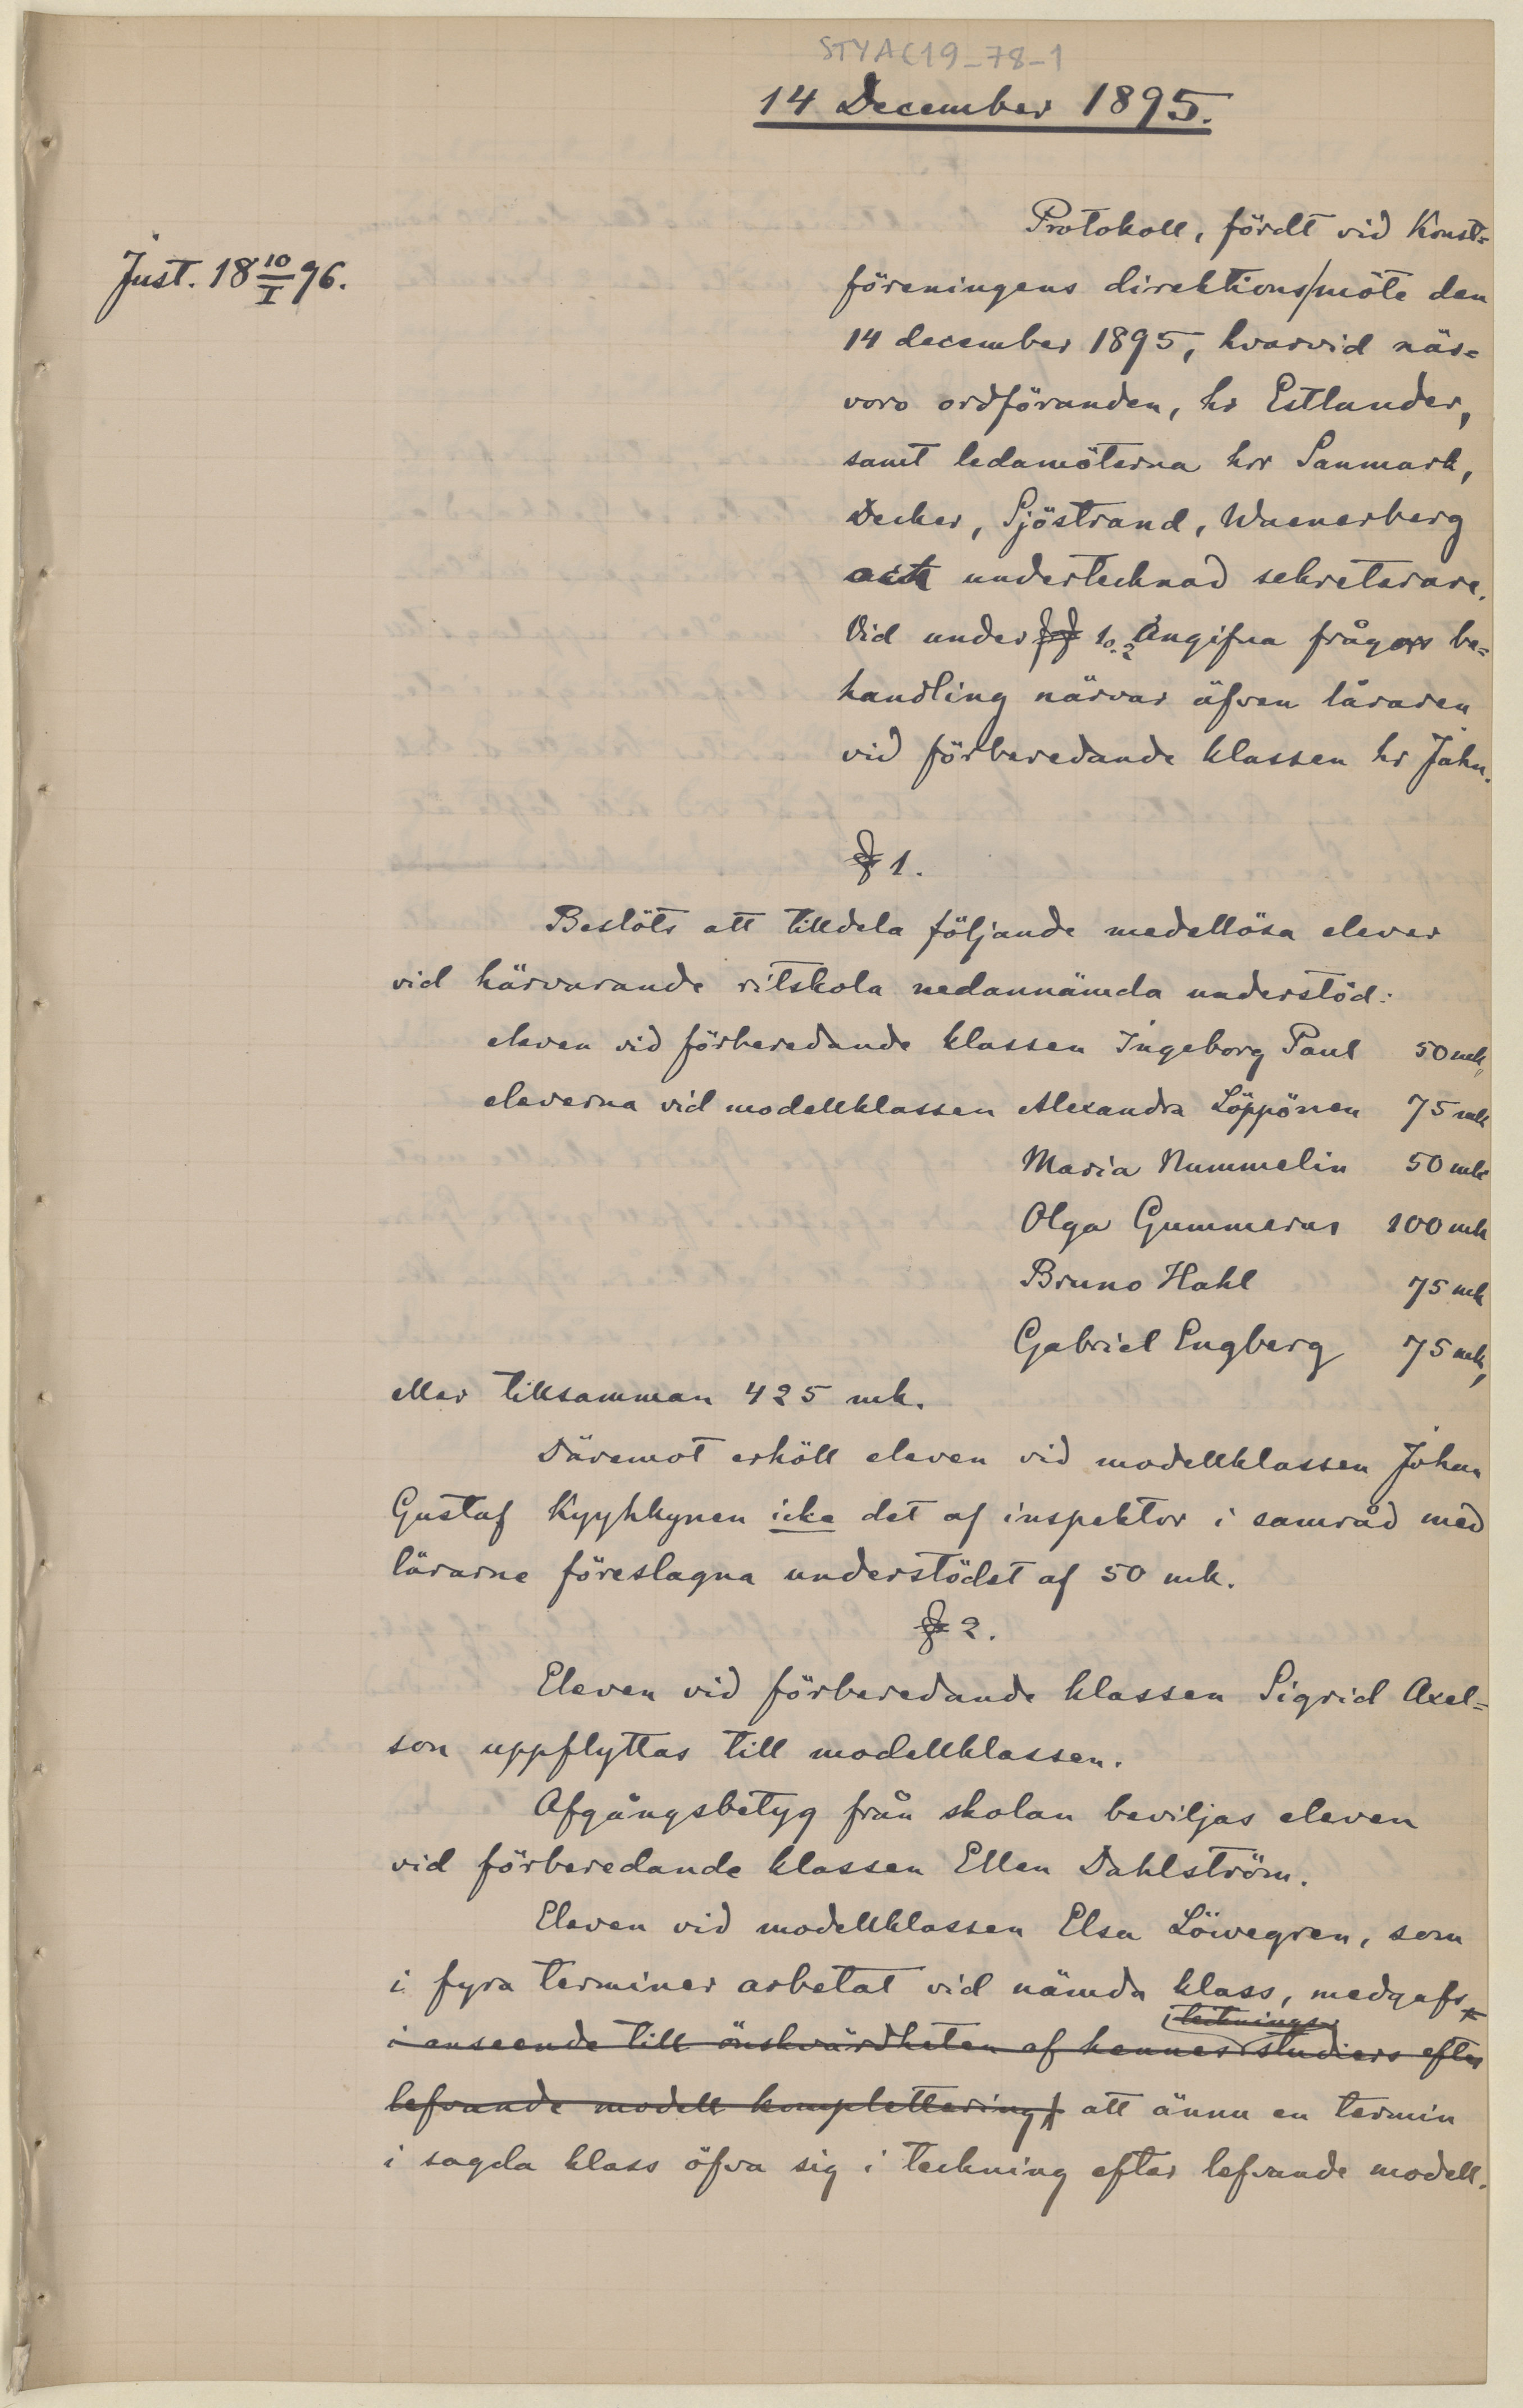 STYAC19_78-1
14 December 1895.
Just. 18 10/I 96.
Protokoll, fördt vid Konst=
föreningens direktions/möte den
14 december 1895, hvarvid när=
voro ordföranden, hr Estlander,
samt ledamöterna hrr Sanmark,
Decker, Sjöstrand, Waenerberg
och undertecknad sekreterare.
Vid under §§ 1 o. 2 angifna frågors be=
handling närvar äfven läraren
vid förberedande klassen hr Jahn.
§ 1.
Beslöts att tilldela följande medellösa elever
vid härvarande ritskola nedannämda understöd:
eleven vid förberedande klassen Ingeborg Paul 50 mk,
eleverna vid modellklassen Alexandra Löppönen 75 mk
Maria Nummelin 50 mk
Olga Gummerus 100 mk
Bruno Hahl 75 mk
Gabriel Engberg 75 mk,
eller tillsamman 425 mk.
Däremot erhöll eleven vid modellklassen Johan
Gustaf Kyyhkynen icke det af inspektor i samråd med
lärarne föreslagna understödet af 50 mk.
§ 2.
Eleven vid förberedande klassen Sigrid Axel=
son uppflyttas till modellklassen.
Afgångsbetyg från skolan beviljas eleven
vid förberedande klassen Ellen Dahlström.
Eleven vid modellklassen Elsa Löwegren, som
i fyra terminer arbetat vid nämda klass, medgafs
tecknings
i anseende till önskvärdheten af hennes studiers efter
lefvande modell komplettering, att ännu en termin
i sagda klass öfva sig i teckning efter lefvande modell.